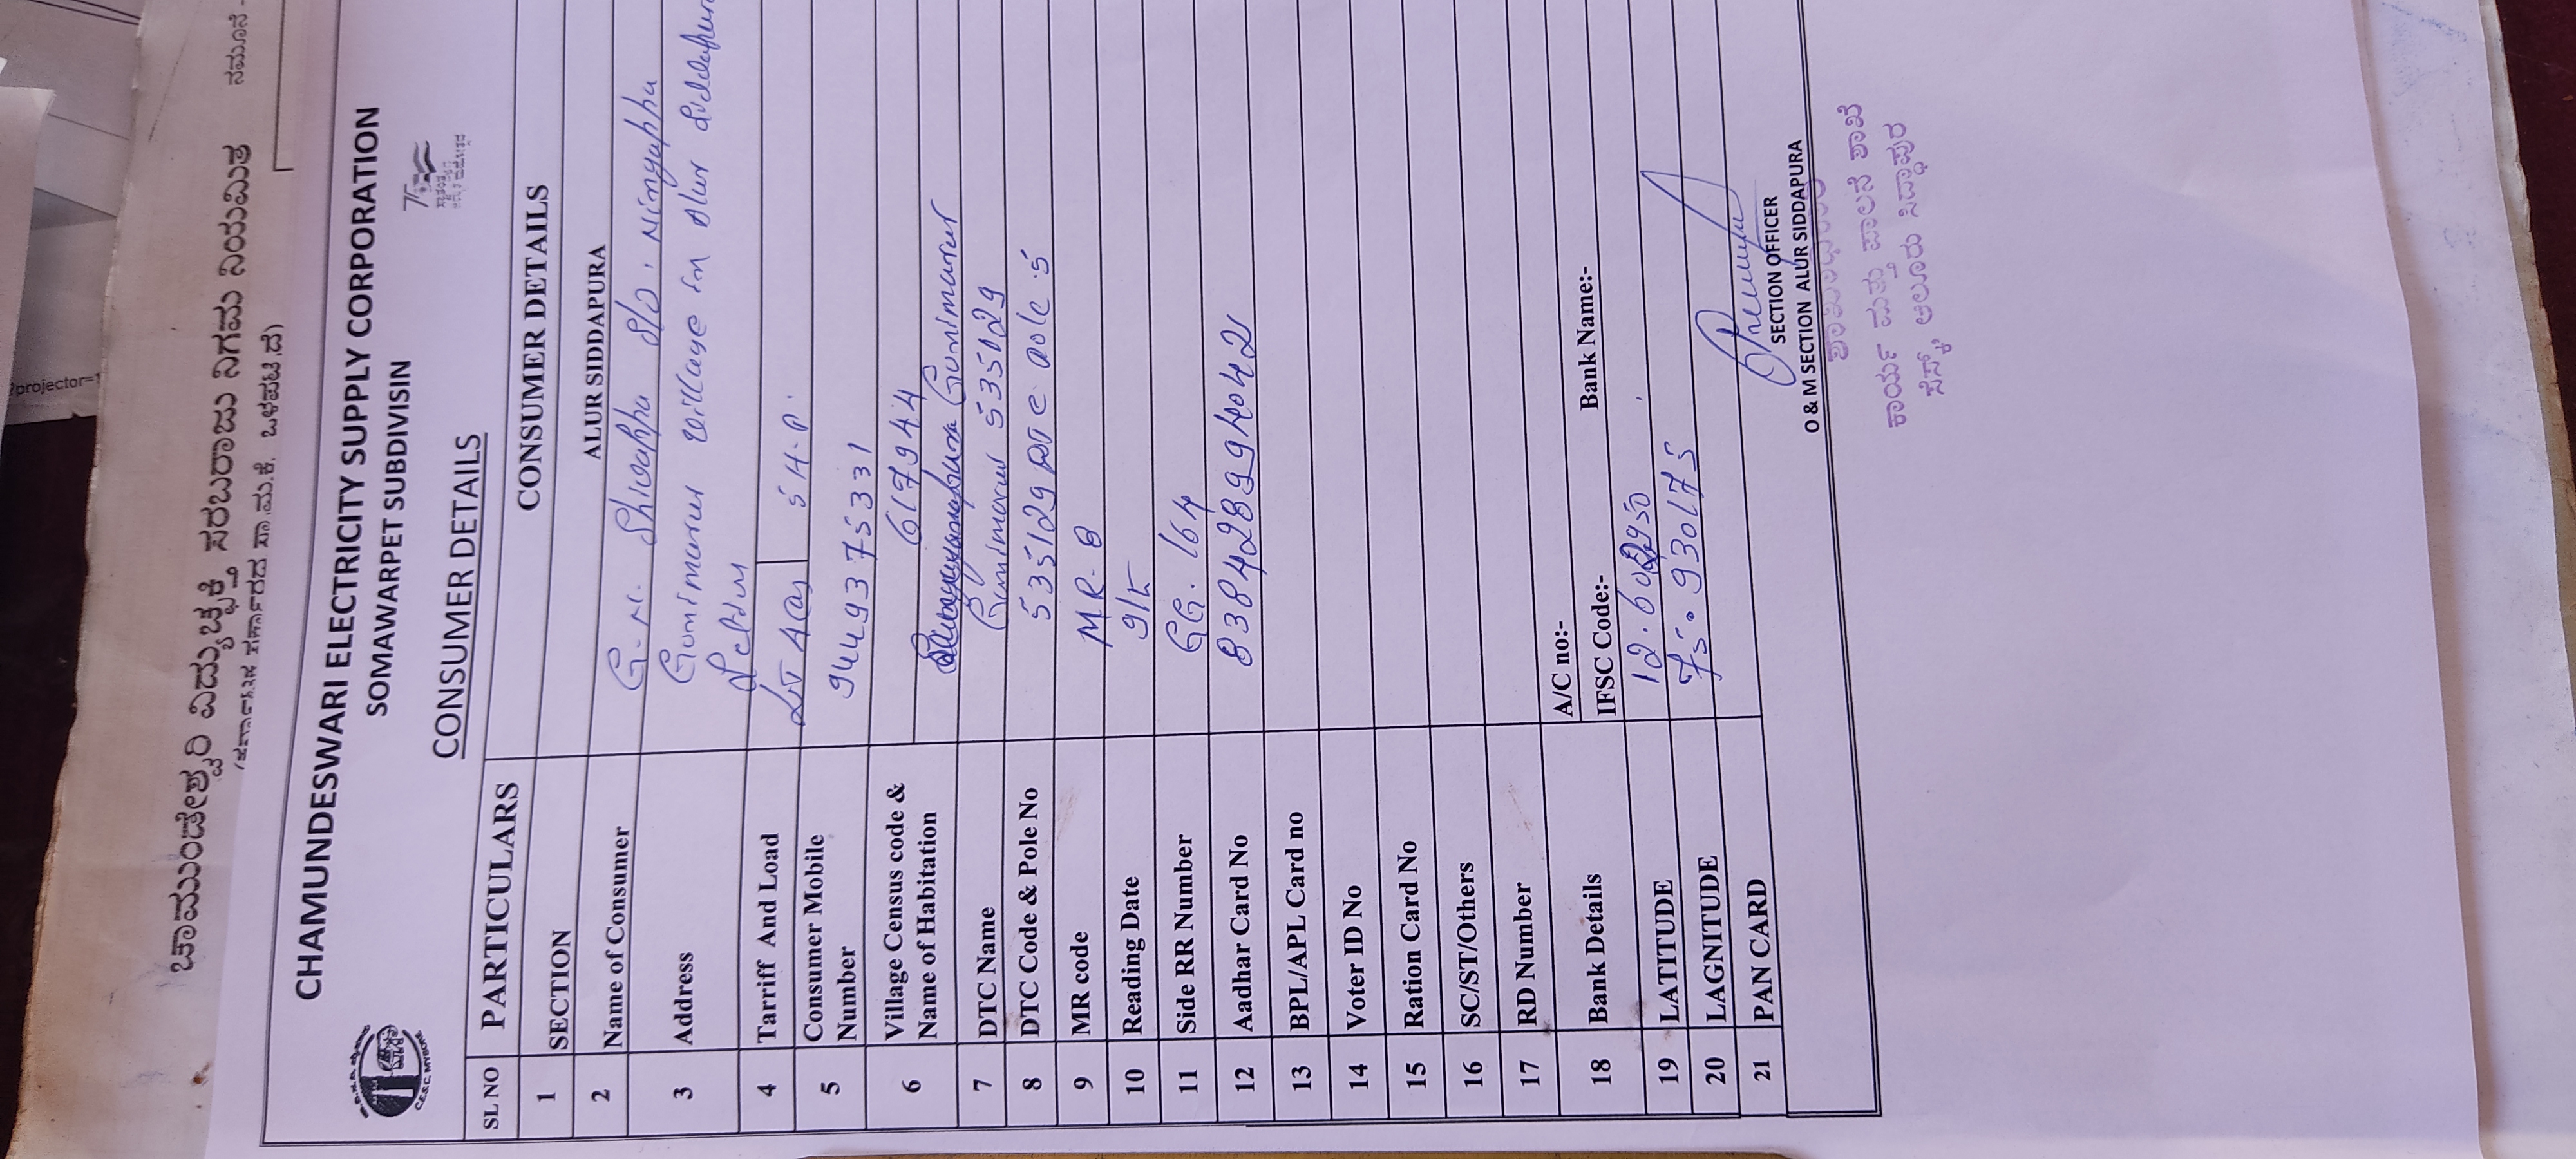 ಚಾಮುಂಡೇಶ್ವರಿ ವಿದ್ಯುಚ್ಛಕ್ತಿ ಸರಬರಾಜು ನಿಗಮ ನಿಯಮಿತ
(ಕರ್ನಾಟಕ ಸರ್ಕಾರದ ಸ್ವಾಮ್ಯಕ್ಕೆ ಒಳಪಟ್ಟಿದೆ)
ನಮೂನೆ -
?projector=1
CHAMUNDESWARI ELECTRICITY SUPPLY CORPORATION
SOMAWARPET SUBDIVISIN
CONSUMER DETAILS
C.E.S.C. MYSORE
SL NO PARTICULARS CONSUMER DETAILS
1 SECTION ALUR SIDDAPURA
2 Name of Consumer G.N. Shivappa S/O. Ningappa
3 Address Gonimarur village in Alur Siddapura
4 Tarriff And Load LT 4(a) 5 H.P.
5 Consumer Mobile Number 9449375331
6 Village Census code & Name of Habitation 617944
Gonimarur
7 DTC Name Gonimarur 535029
8 DTC Code & Pole No 535129 DTC Pole .5
9 MR code MR-8
10 Reading Date 9/5
11 Side RR Number GG. 164
12 Aadhar Card No 838428994042
13 BPL/APL Card no
14 Voter ID No
15 Ration Card No
16 SC/ST/Others
17 RD Number
18 Bank Details A/C no:-
IFSC Code:- Bank Name:-
19 LATITUDE
20 LAGNITUDE 75.930175
21 PAN CARD
SECTION OFFICER
O & M SECTION ALUR SIDDAPURA
ಕಾರ್ಯ ಮತ್ತು ಪಾಲನೆ ಶಾಖೆ
ಸೆಸ್ಕ್, ಆಲೂರು ಸಿದ್ದಾಪುರ